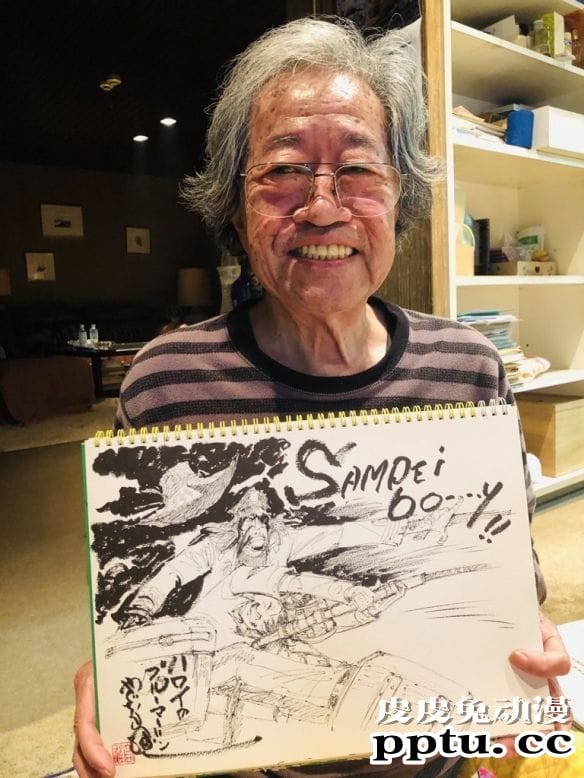 SAMPEi
bo····y!!
ハワイの
ブルーマーリン
皮皮兔动漫
pptu.cc